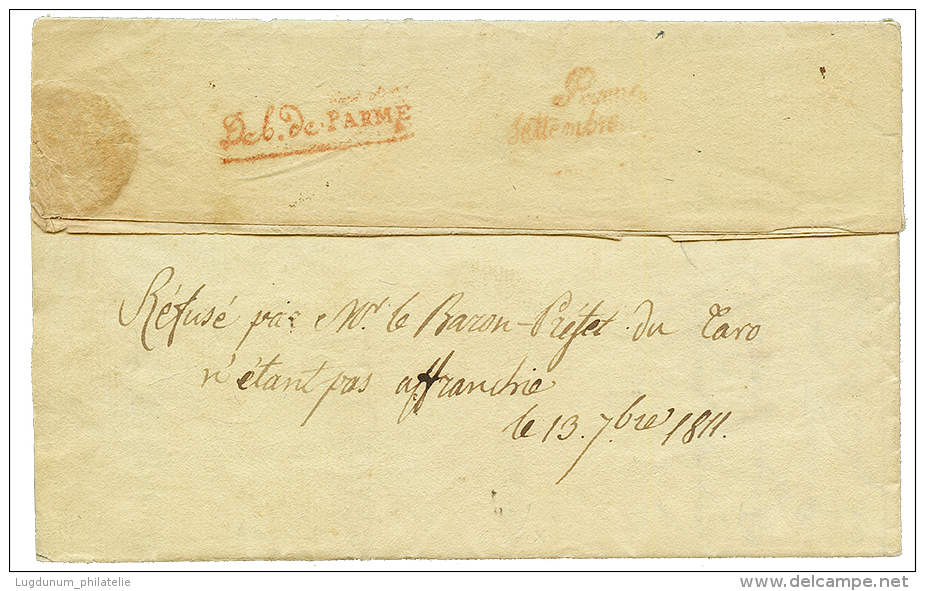 Deb. de PARME
Settembre
Réfusé par Mr. le Baron-Préfet du Taro
n'étant pas affranchie
le 13. 7bre 1811.
Lugdunum_philatelie
www.delcampe.net